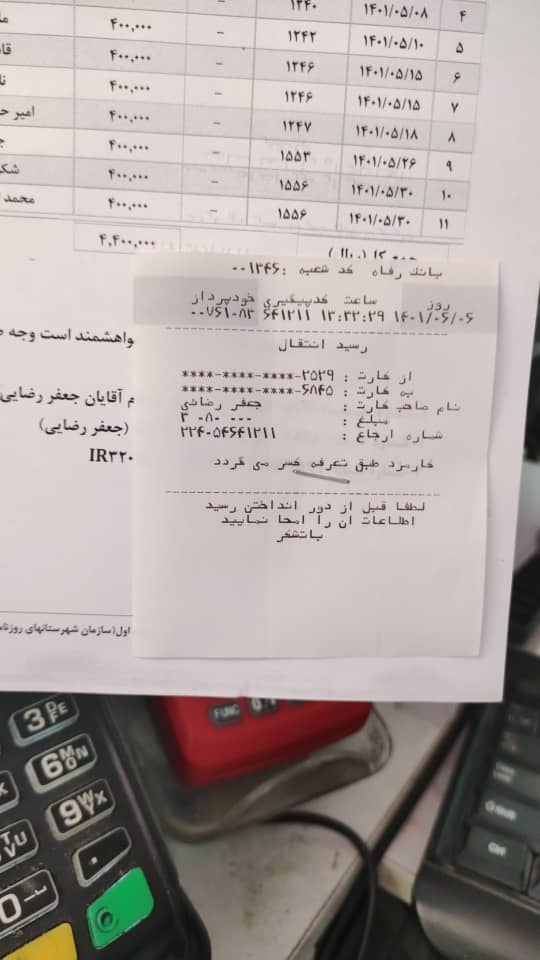 ۴ ۱۴۰۱/۰۵/۰۸ ۱۲۴۰
۵ ۱۴۰۱/۰۵/۱۰ ۱۲۴۲ - ۴۰۰,۰۰۰
۶ ۱۴۰۱/۰۵/۱۵ ۱۲۴۶ - ۴۰۰,۰۰۰
۷ ۱۴۰۱/۰۵/۱۵ ۱۲۴۶ - ۴۰۰,۰۰۰
۸ ۱۴۰۱/۰۵/۱۸ ۱۲۴۷ - ۴۰۰,۰۰۰ امیر
۹ ۱۴۰۱/۰۵/۲۶ ۱۵۵۳ - ۴۰۰,۰۰۰
۱۰ ۱۴۰۱/۰۵/۳۰ ۱۵۵۶ - ۴۰۰,۰۰۰
۱۱ ۱۴۰۱/۰۵/۳۰ ۱۵۵۶ - ۴۰۰,۰۰۰ محمد
۴,۴۰۰,۰۰۰
بانک رفاه کد شعبه :۰۰۱۳۴۶
روز ساعت کدپیگیری خودپرداز
۱۴۰۱/۰۶/۰۶ ۱۳:۳۲:۲۹ ۶۴۱۲۱۱ ۰۰۷۶۱۰۸۳
رسید انتقال
از کارت : ۲۵۲۹-****-****-****
به کارت : ۶۸۴۵-****-****-****
نام صاحب کارت : جعفر رضائی
مبلغ : ۳ ۰۸۰ ۰۰۰
شماره ارجاع : ۲۲۴۰۵۴۶۴۱۲۱۱
کارمزد طبق تعرفه کسر می گردد
لطفا قبل از دور انداختن رسید
اطلاعات آن را امحا نمایید
باتشکر
واهشمند است وجه
م آقایان جعفر رضایی
(جعفر رضایی)
IR۳۲۰
اول(سازمان شهرستانهای
FUNC
3 DEF
6 MNO
9 WXY
TUV
.
0